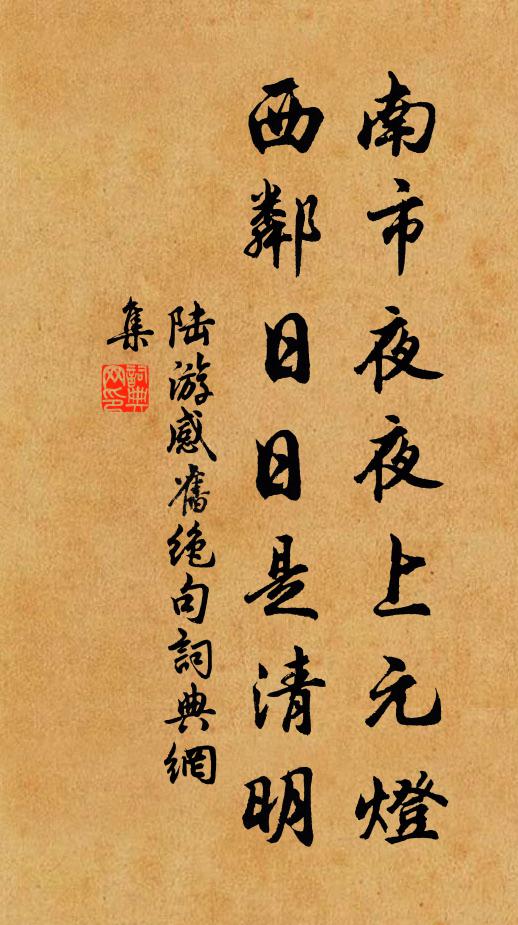 南市夜夜上元燈
西鄰日日是清明
陸游感舊絶句詞典網
集
詞典
网印